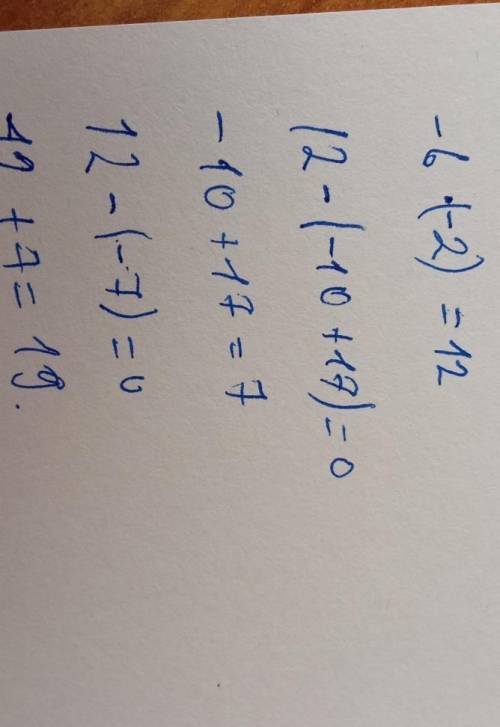 -6 · (-2) = 12
12 - (-10 + 17) = 0
-10 + 17 = 7
12 - (-7) = 0
12 + 7 = 19.